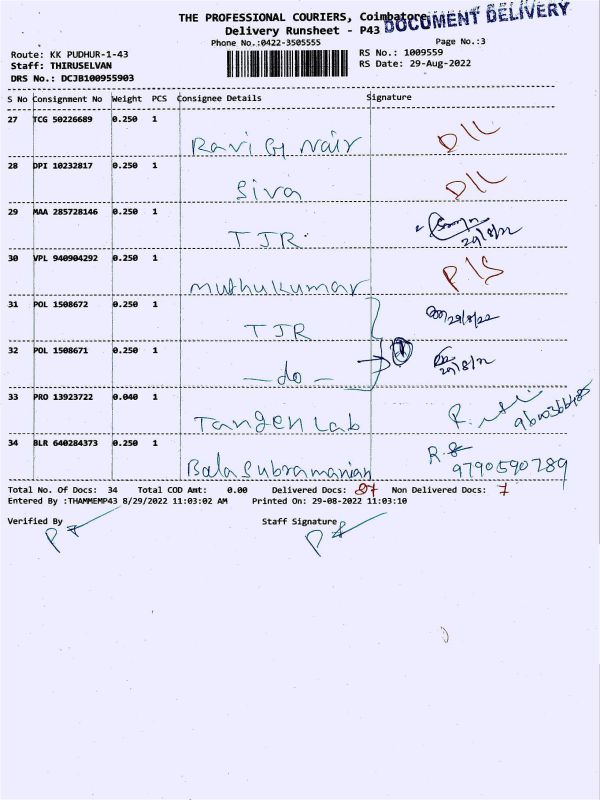 THE PROFESSIONAL COURIERS, Coimbatore
DOCUMENT DELIVERY
Delivery Runsheet - P43
Phone No.:0422-3505555 Page No.:3
Route: KK PUDHUR-1-43 RS No.: 1009559
Staff: THIRUSELVAN RS Date: 29-Aug-2022
DRS No.: DCJB100955903
S No Consignment No Weight PCS Consignee Details Signature
27 TCG 50226689 0.250 1
Ravi G Nair D/L
28 DPI 10232817 0.250 1
Siva D/L
29 MAA 285728146 0.250 1
TJR 29/8/22
30 VPL 940904292 0.250 1
muthukumar P/S
31 POL 1508672 0.250 1
TJR 29/8/22
32 POL 1508671 0.250 1
- do - 29/8/22
33 PRO 13923722 0.040 1
Tangen Lab
34 BLR 640284373 0.250 1
Bala Subramanian 9790590789
Total No. Of Docs: 34 Total COD Amt: 0.00 Delivered Docs: 27 Non Delivered Docs: 7
Entered By :THAMMEMP43 8/29/2022 11:03:02 AM Printed On: 29-08-2022 11:03:10
Verified By Staff Signature